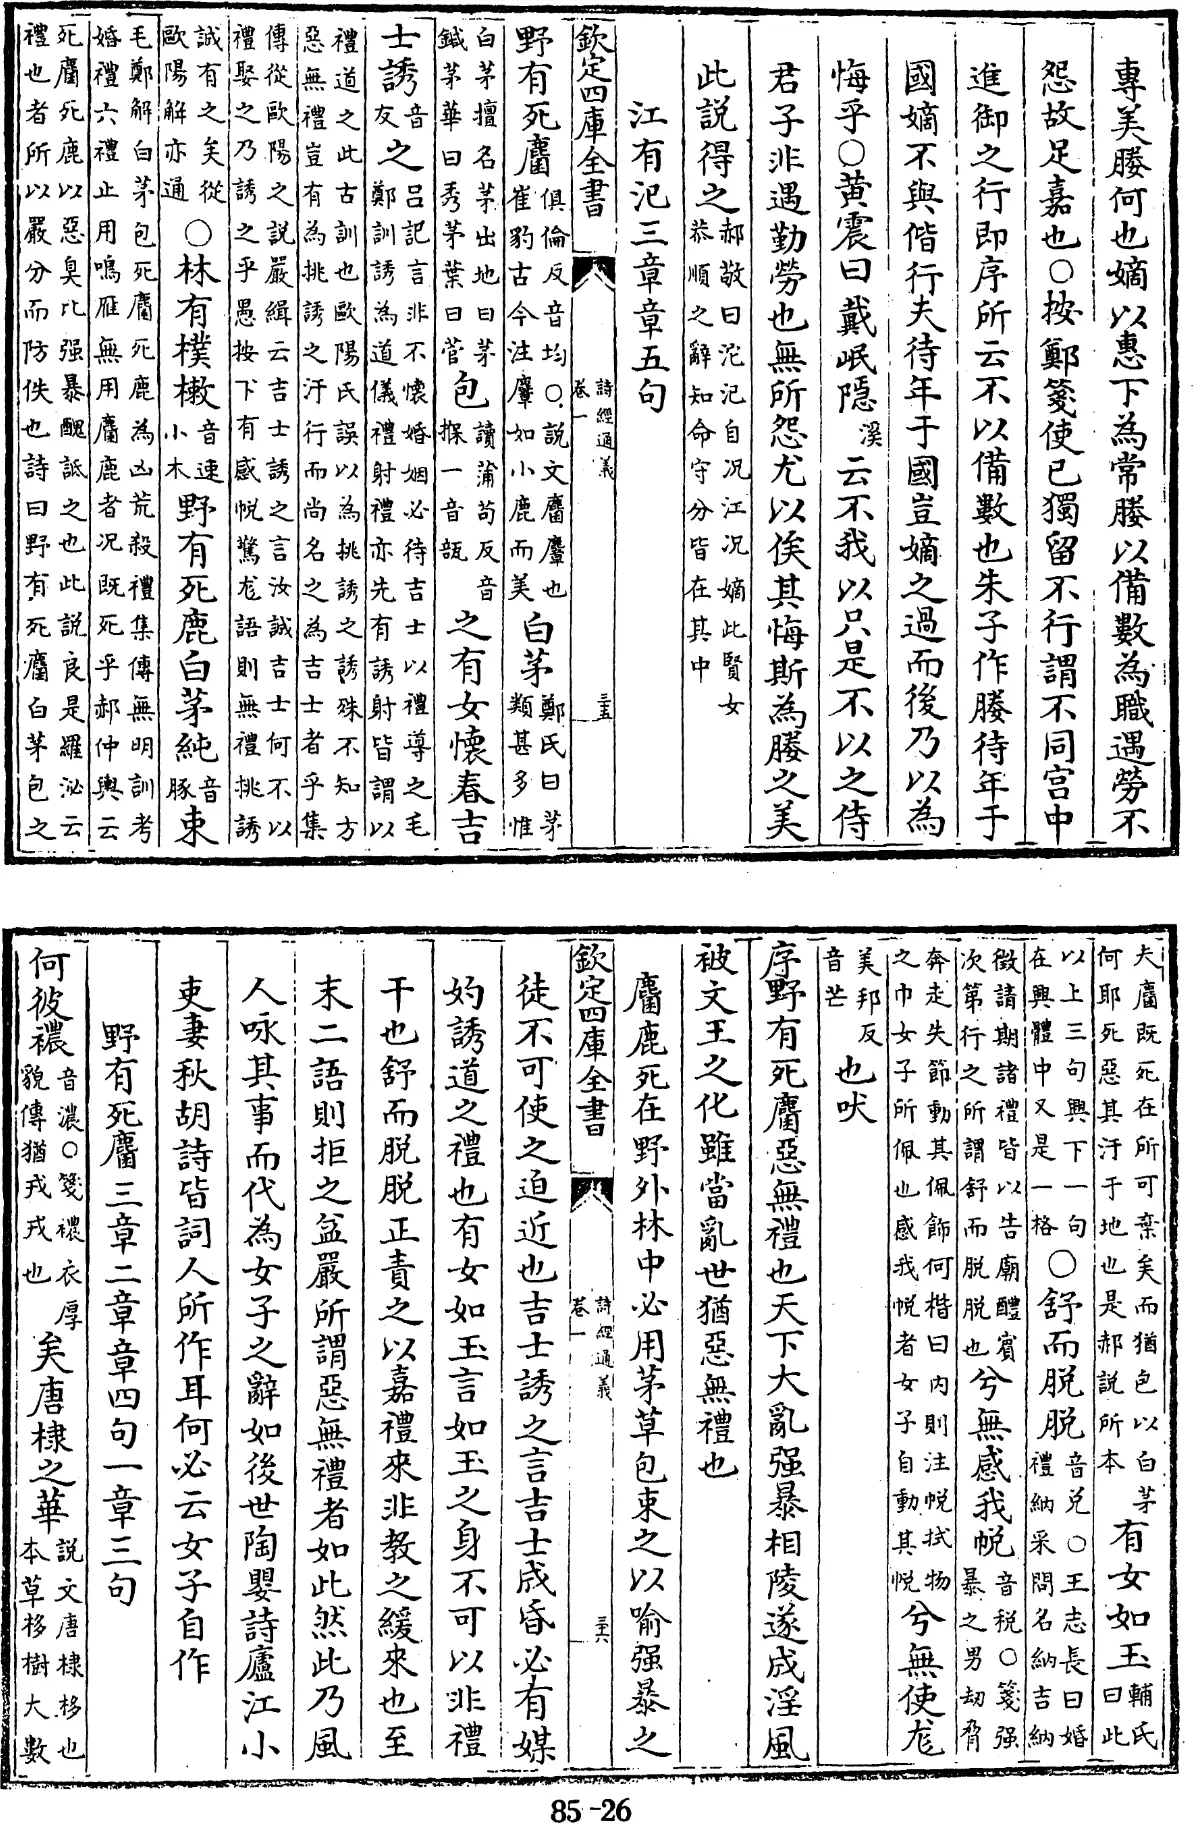 專美媵何也嫡以惠下為常媵以備數為職遇勞不
怨故足嘉也○按鄭箋使已獨留不行謂不同宫中
進御之行即序所云不以備數也朱子作媵待年于
國嫡不與偕行夫待年于國豈嫡之過而後乃以為
悔乎○黄震曰戴岷隱溪云不我以只是不以之侍
君子非遇勤勞也無所怨尤以俟其悔斯為媵之美
此説得之郝敬曰沱汜自况江况嫡此賢女
恭順之辭知命守分皆在其中
江有汜三章章五句
欽定四庫全書 詩經通義 卷一 三五
野有死麕俱倫反音均○説文麕麞也
崔豹古今注麞如小鹿而美白茅鄭氏曰茅
類甚多惟
白茅擅名茅出地曰茅
鍼茅華曰秀茅葉曰菅包讀蒲苟反音
探一音瓿之有女懷春吉
士誘音
友之吕記言非不懷婚姻必待吉士以禮導之毛
鄭訓誘為道儀禮射禮亦先有誘射皆謂以
禮道之此古訓也歐陽氏誤以為挑誘之誘殊不知方
惡無禮豈有為挑誘之汙行而尚名之為吉士者乎集
傳從歐陽之説嚴緝云吉士誘之言汝誠吉士何不以
禮娶之乃誘之乎愚按下有感帨驚尨語則無禮挑誘
誠有之矣從
歐陽解亦通○林有樸樕音速
小木野有死鹿白茅純音
豚束
毛鄭解白茅包死麕死鹿為凶荒殺禮集傳無明訓考
婚禮六禮止用鳴雁無用麕鹿者况既死乎郝仲輿云
死麕死鹿以惡臭比强暴醜詆之也此説良是羅泌云
禮也者所以嚴分而防佚也詩曰野有死麕白茅包之
夫麕既死在所可棄矣而猶包以白茅
何耶死惡其汙于地也是郝説所本有女如玉輔氏
曰此
以上三句興下一句
在興體中又是一格○舒而脱脱音兑○王志長曰婚
禮納采問名納吉納
徵請期諸禮皆以告廟醴賓
次第行之所謂舒而脱脱也兮無感我帨音税○箋强
暴之男劫脅
奔走失節動其佩飾何楷曰内則注帨拭物
之巾女子所佩也感我帨者女子自動其帨兮無使尨
美邦反
音芒也吠
序野有死麕惡無禮也天下大亂强暴相陵遂成淫風
被文王之化雖當亂世猶惡無禮也
麕鹿死在野外林中必用茅草包束之以喻强暴之
欽定四庫全書 詩經通義 卷一 三六
徒不可使之迫近也吉士誘之言吉士成昏必有媒
妁誘道之禮也有女如玉言如玉之身不可以非禮
干也舒而脱脱正責之以嘉禮來非教之緩來也至
末二語則拒之益嚴所謂惡無禮者如此然此乃風
人咏其事而代為女子之辭如後世陶嬰詩廬江小
吏妻秋胡詩皆詞人所作耳何必云女子自作
野有死麕三章二章章四句一章三句
何彼襛音濃○箋襛衣厚
貌傳猶戎戎也矣唐棣之華説文唐棣栘也
本草栘樹大數
85-26